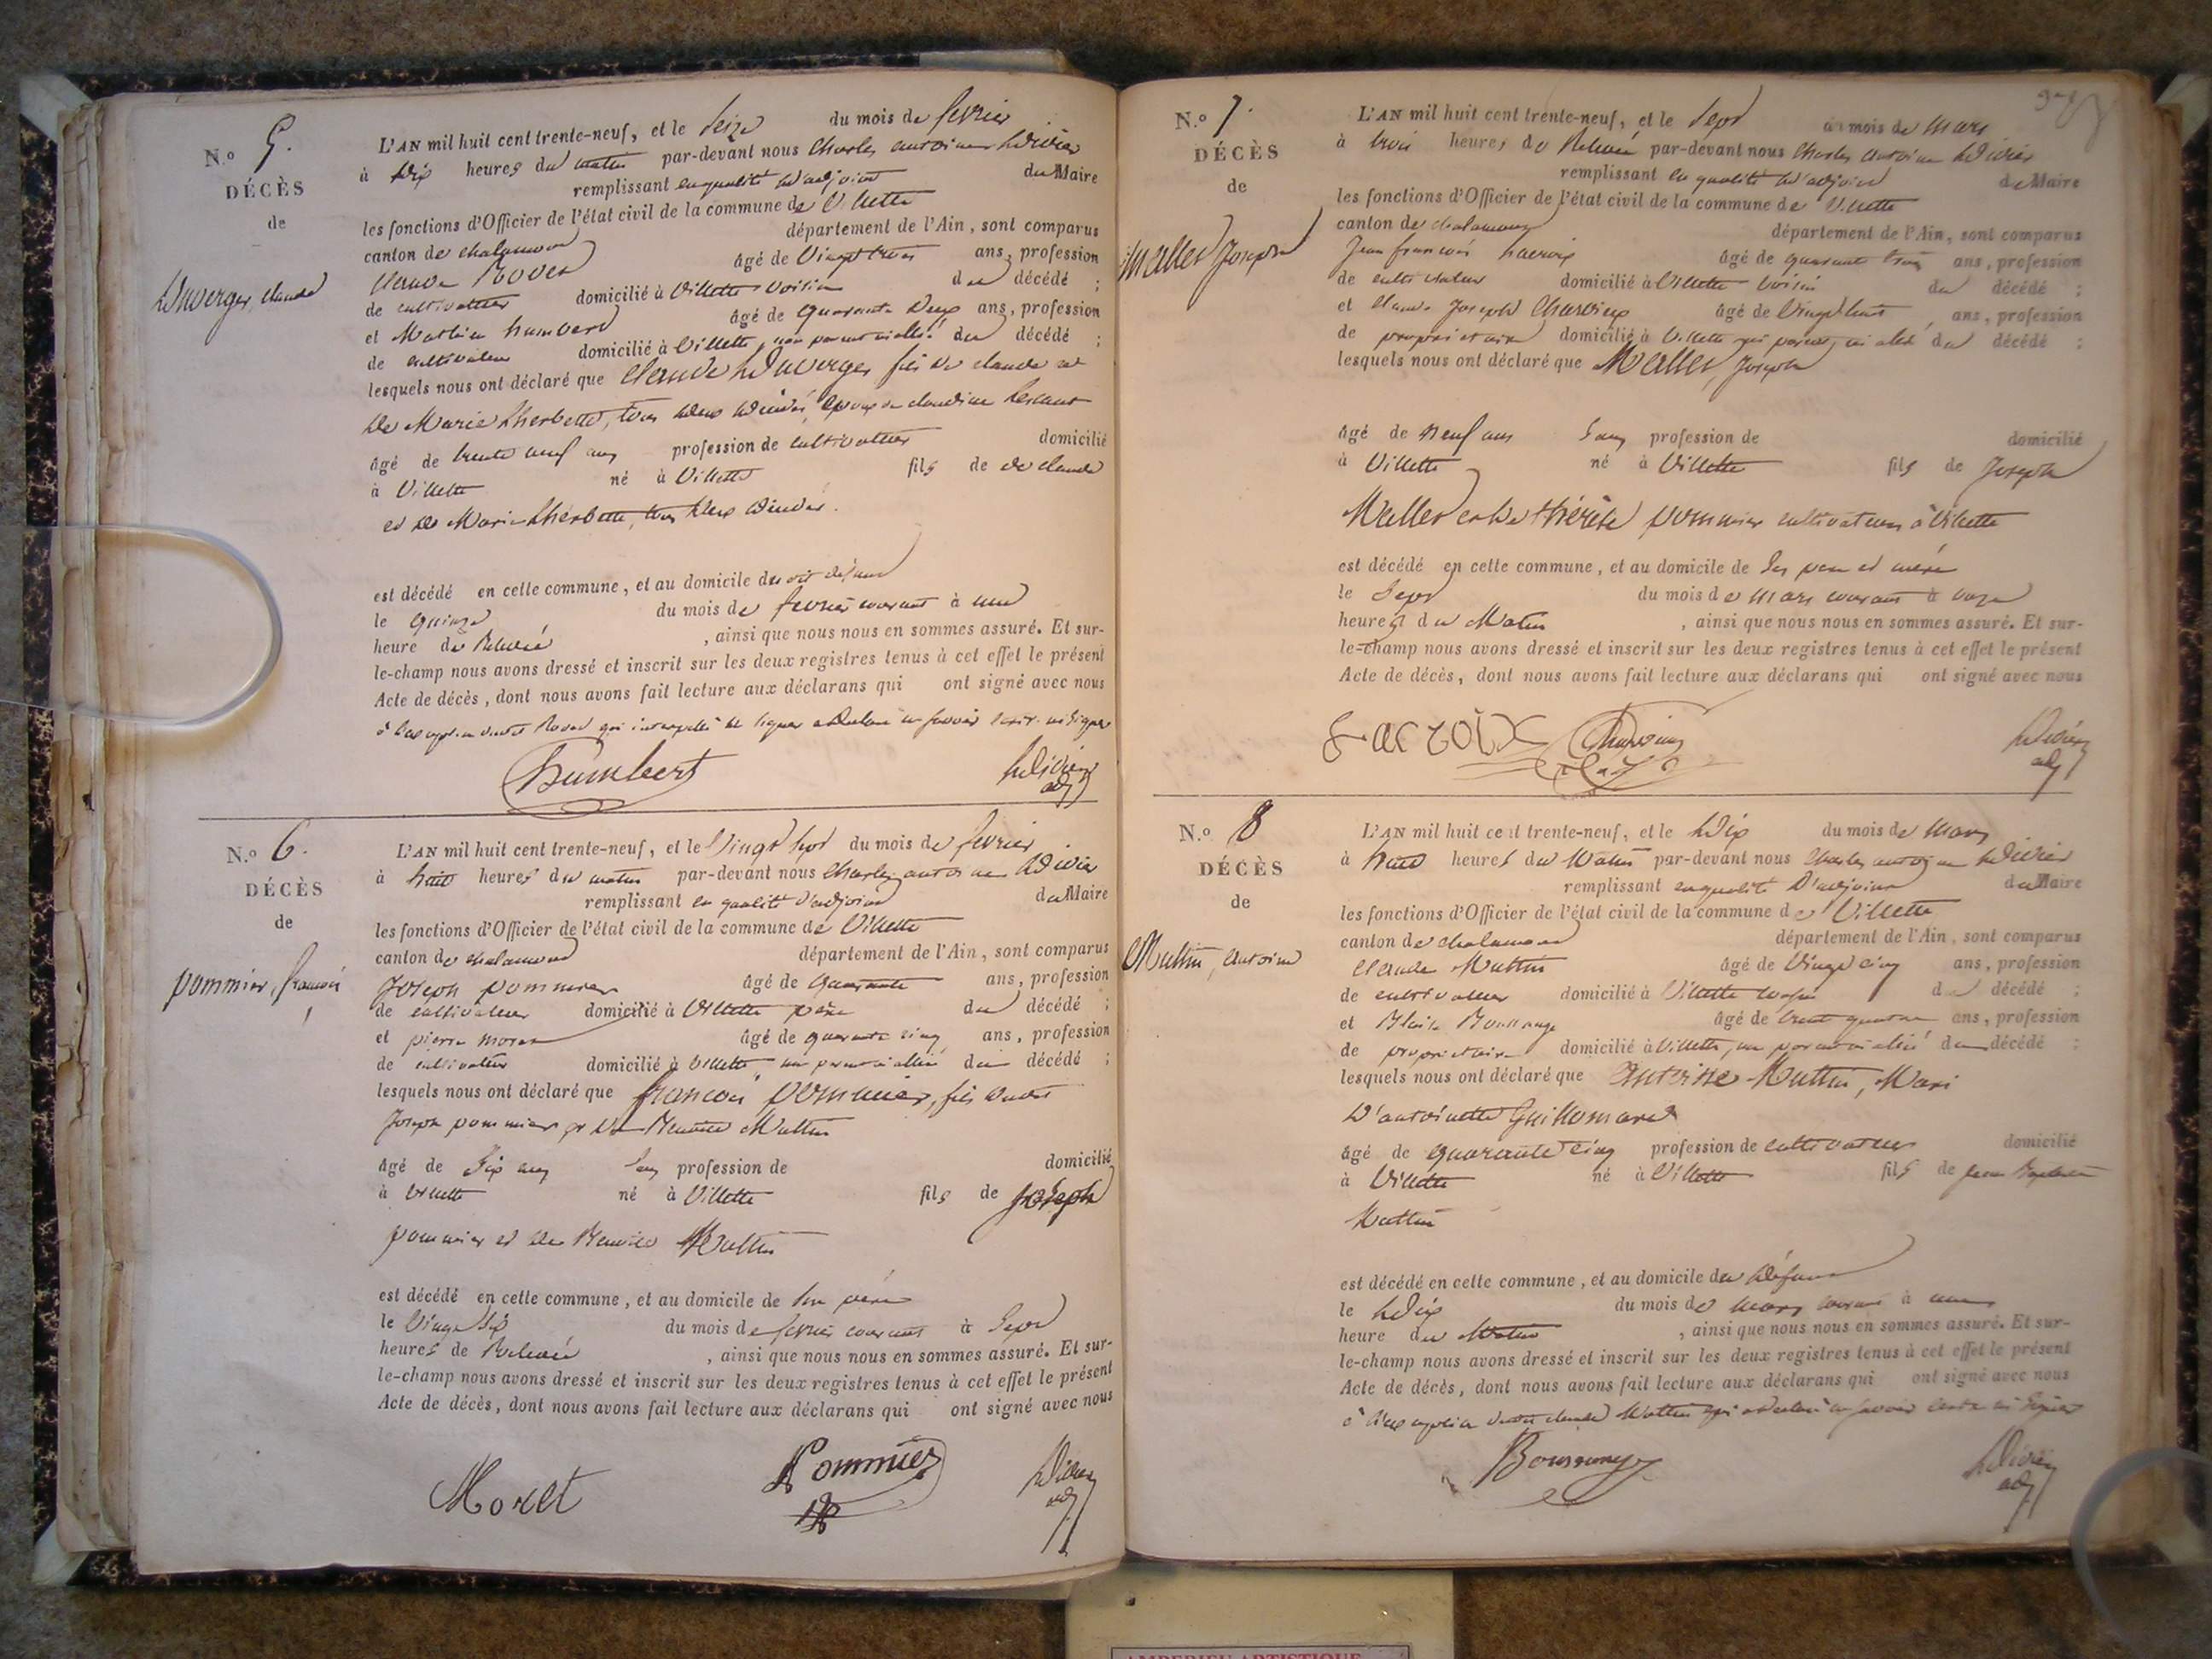 N.o 5.
DÉCÈS
de
Duverger, claude
L'AN mil huit cent trente-neuf, et le Seize du mois de fevrier
à Dix heures du matin par-devant nous Charles antoine Didier
remplissant en qualité d'adjoint du Maire
les fonctions d'Officier de l'état civil de la commune de Villette
canton de chalamont département de l'Ain, sont comparus
Claude âgé de Vingt trois ans, profession
de cultivateur domicilié à Villette voisin du décédé ;
et Mathieu humbert âgé de quarante Deux ans, profession
de cultivateur domicilié à Villette, non parent ni allié du décédé ;
lesquels nous ont déclaré que Claude Duverger fils de claude et
De Marie Lherbette, tous deux décédés, époux de claudine
âgé de trente neuf ans profession de cultivateur domicilié
à Villette né à Villette fils de de claude
et de Marie Lherbette, tous deux décédés.
est décédé en cette commune, et au domicile du dit défunt
le quinze du mois de fevrier courant à une
heure de Relevée, ainsi que nous nous en sommes assuré. Et sur-
le-champ nous avons dressé et inscrit sur les deux registres tenus à cet effet le présent
Acte de décès, dont nous avons fait lecture aux déclarans qui ont signé avec nous
à l'exception dudit qui interpellé de signer a déclaré ne savoir écrire ni signer
Humbert Didier adj
N.o 6.
DÉCÈS
de
pommier, françois
L'AN mil huit cent trente-neuf, et le Vingt Sept du mois de fevrier
à huit heures du matin par-devant nous Charles antoine Didier
remplissant en qualité d'adjoint du Maire
les fonctions d'Officier de l'état civil de la commune de Villette
canton de chalamont département de l'Ain, sont comparus
Joseph pommier âgé de quarante ans, profession
de cultivateur domicilié à Villette père du décédé ;
et pierre moret âgé de quarante cinq ans, profession
de cultivateur domicilié à Villette non parent ni allié du décédé ;
lesquels nous ont déclaré que françois pommier, fils dudit
Joseph pommier et de Benoite Muttin
âgé de Six ans Sans profession de domicilié
à Villette né à Villette fils de Joseph
pommier et de Benoite Muttin
est décédé en cette commune, et au domicile de son père
le Vingt Six du mois de fevrier courant à Sept
heures de Relevée, ainsi que nous nous en sommes assuré. Et sur-
le-champ nous avons dressé et inscrit sur les deux registres tenus à cet effet le présent
Acte de décès, dont nous avons fait lecture aux déclarans qui ont signé avec nous
Moret Pommier Didier adj
N.o 7.
DÉCÈS
de
Mallet Joseph
L'AN mil huit cent trente-neuf, et le Sept du mois de Mars
à trois heures de Relevée par-devant nous Charles antoine Didier
remplissant en qualité d'adjoint du Maire
les fonctions d'Officier de l'état civil de la commune de Villette
canton de chalamont département de l'Ain, sont comparus
Jean françois Lacroix âgé de quarante trois ans, profession
de cultivateur domicilié à Villette voisin du décédé ;
et Claude Joseph Charvieux âgé de Vingt huit ans, profession
de propriétaire domicilié à Villette ni allié du décédé ;
lesquels nous ont déclaré que Mallet, Joseph
âgé de Neuf ans Sans profession de domicilié
à Villette né à Villette fils de Joseph
Mallet et de thérèse pommier cultivateurs à Villette
est décédé en cette commune, et au domicile de Ses père et mère
le Sept du mois de Mars courant à onze
heures du Matin, ainsi que nous nous en sommes assuré. Et sur-
le-champ nous avons dressé et inscrit sur les deux registres tenus à cet effet le présent
Acte de décès, dont nous avons fait lecture aux déclarans qui ont signé avec nous
Lacroix Didier adj
N.o 8
DÉCÈS
de
Muttin, antoine
L'AN mil huit cent trente-neuf, et le Dix du mois de Mars
à huit heures du Matin par-devant nous Charles antoine Didier
remplissant en qualité D'adjoint du Maire
les fonctions d'Officier de l'état civil de la commune de Villette
canton de chalamont département de l'Ain, sont comparus
Claude Muttin âgé de Vingt cinq ans, profession
de cultivateur domicilié à Villette du décédé ;
et Blaise âgé de trente quatre ans, profession
de propriétaire domicilié à Villette, non parent ni allié du décédé ;
lesquels nous ont déclaré que Antoine Muttin, Mari
D'antoinette Guillomard
âgé de quarante cinq profession de cultivateur domicilié
à Villette né à Villette fils de jean Baptiste
Muttin
est décédé en cette commune, et au domicile du défunt
le Dix du mois de mars courant à une
heure du Matin, ainsi que nous nous en sommes assuré. Et sur-
le-champ nous avons dressé et inscrit sur les deux registres tenus à cet effet le présent
Acte de décès, dont nous avons fait lecture aux déclarans qui ont signé avec nous
à l'exception dudit claude Muttin qui a déclaré ne savoir écrire ni signer
Didier adj
AMPERIEU ARTISTIQUE